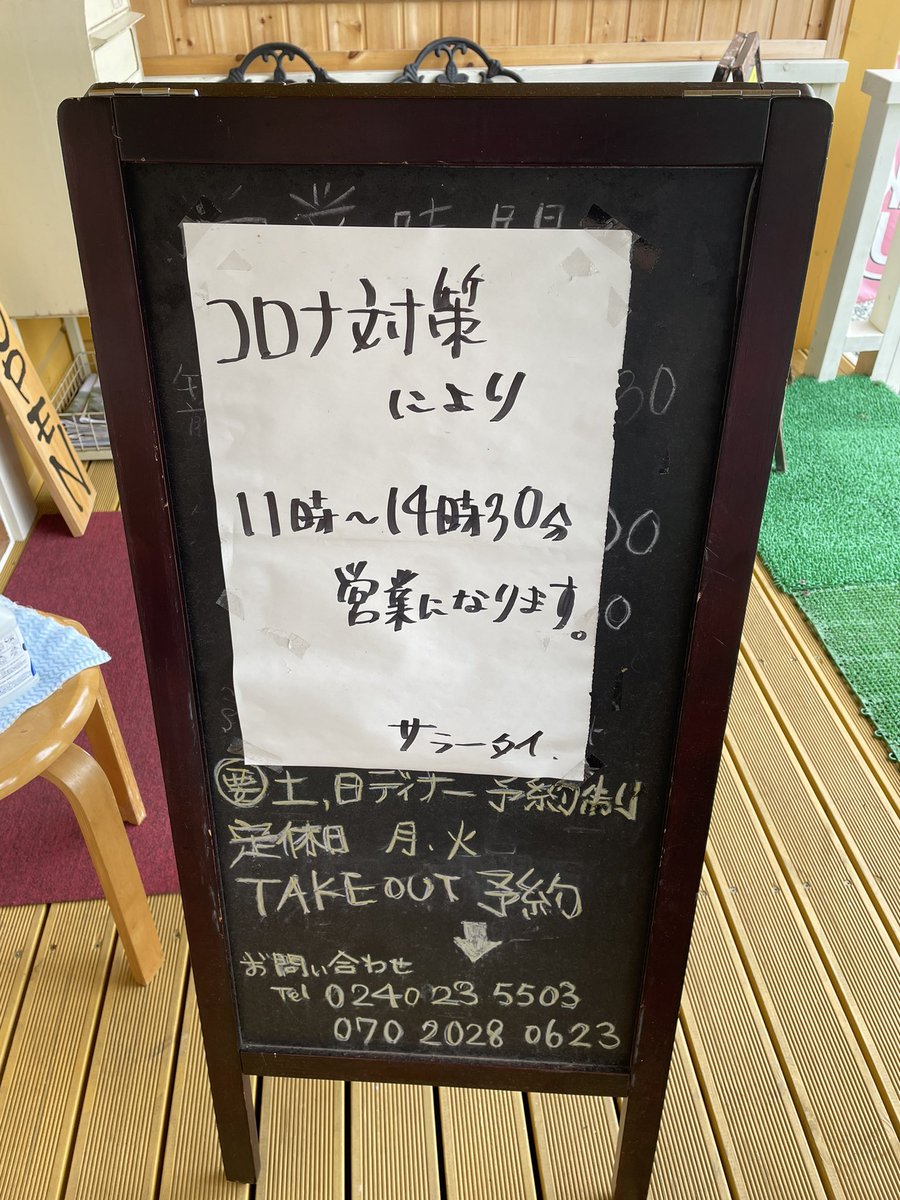 営業時間
コロナ対策
により
11時～14時30分
営業になります。
サラータイ.
午前
30
00
0
OPEN
要 土,日ディナー 予約制
定休日 月、火
TAKE OUT 予約
お問い合わせ
Tel 0240 23 5503
070 2028 0623